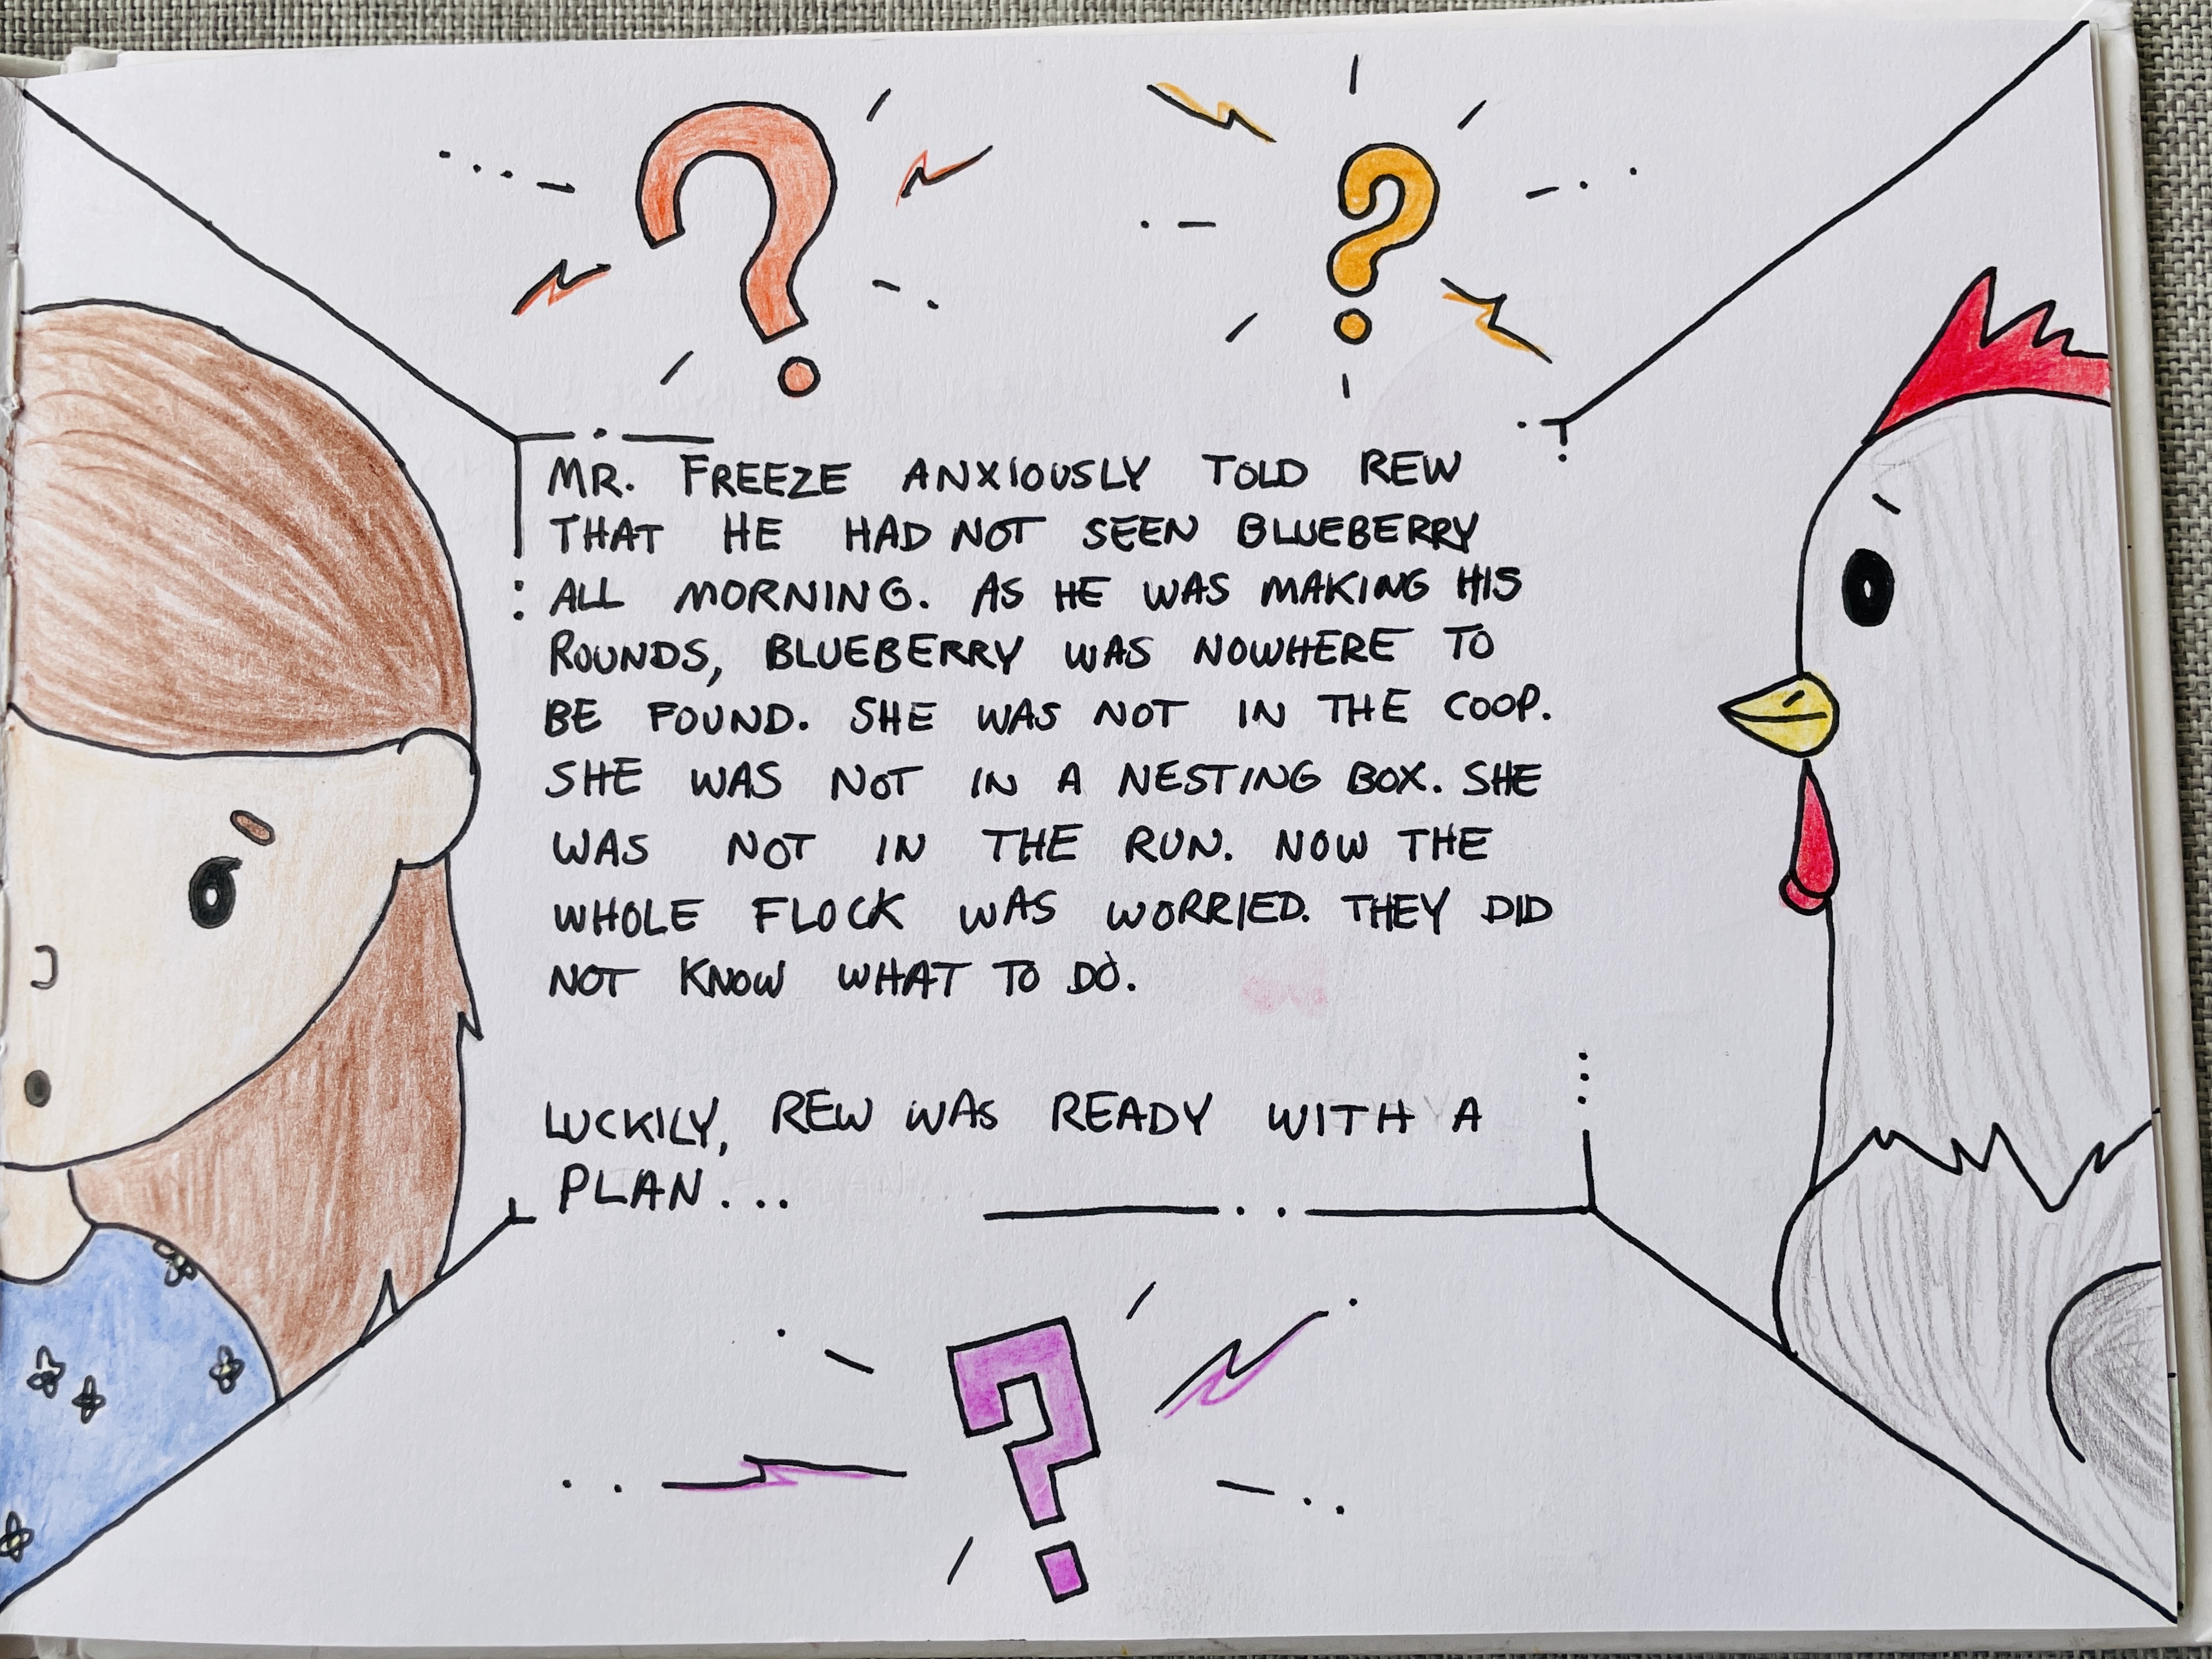 MR. FREEZE ANXIOUSLY TOLD REW
THAT HE HAD NOT SEEN BLUEBERRY
ALL MORNING. AS HE WAS MAKING HIS
ROUNDS, BLUEBERRY WAS NOWHERE TO
BE FOUND. SHE WAS NOT IN THE COOP.
SHE WAS NOT IN A NESTING BOX. SHE
WAS NOT IN THE RUN. NOW THE
WHOLE FLOCK WAS WORRIED. THEY DID
NOT KNOW WHAT TO DO.
LUCKILY, REW WAS READY WITH A
PLAN...